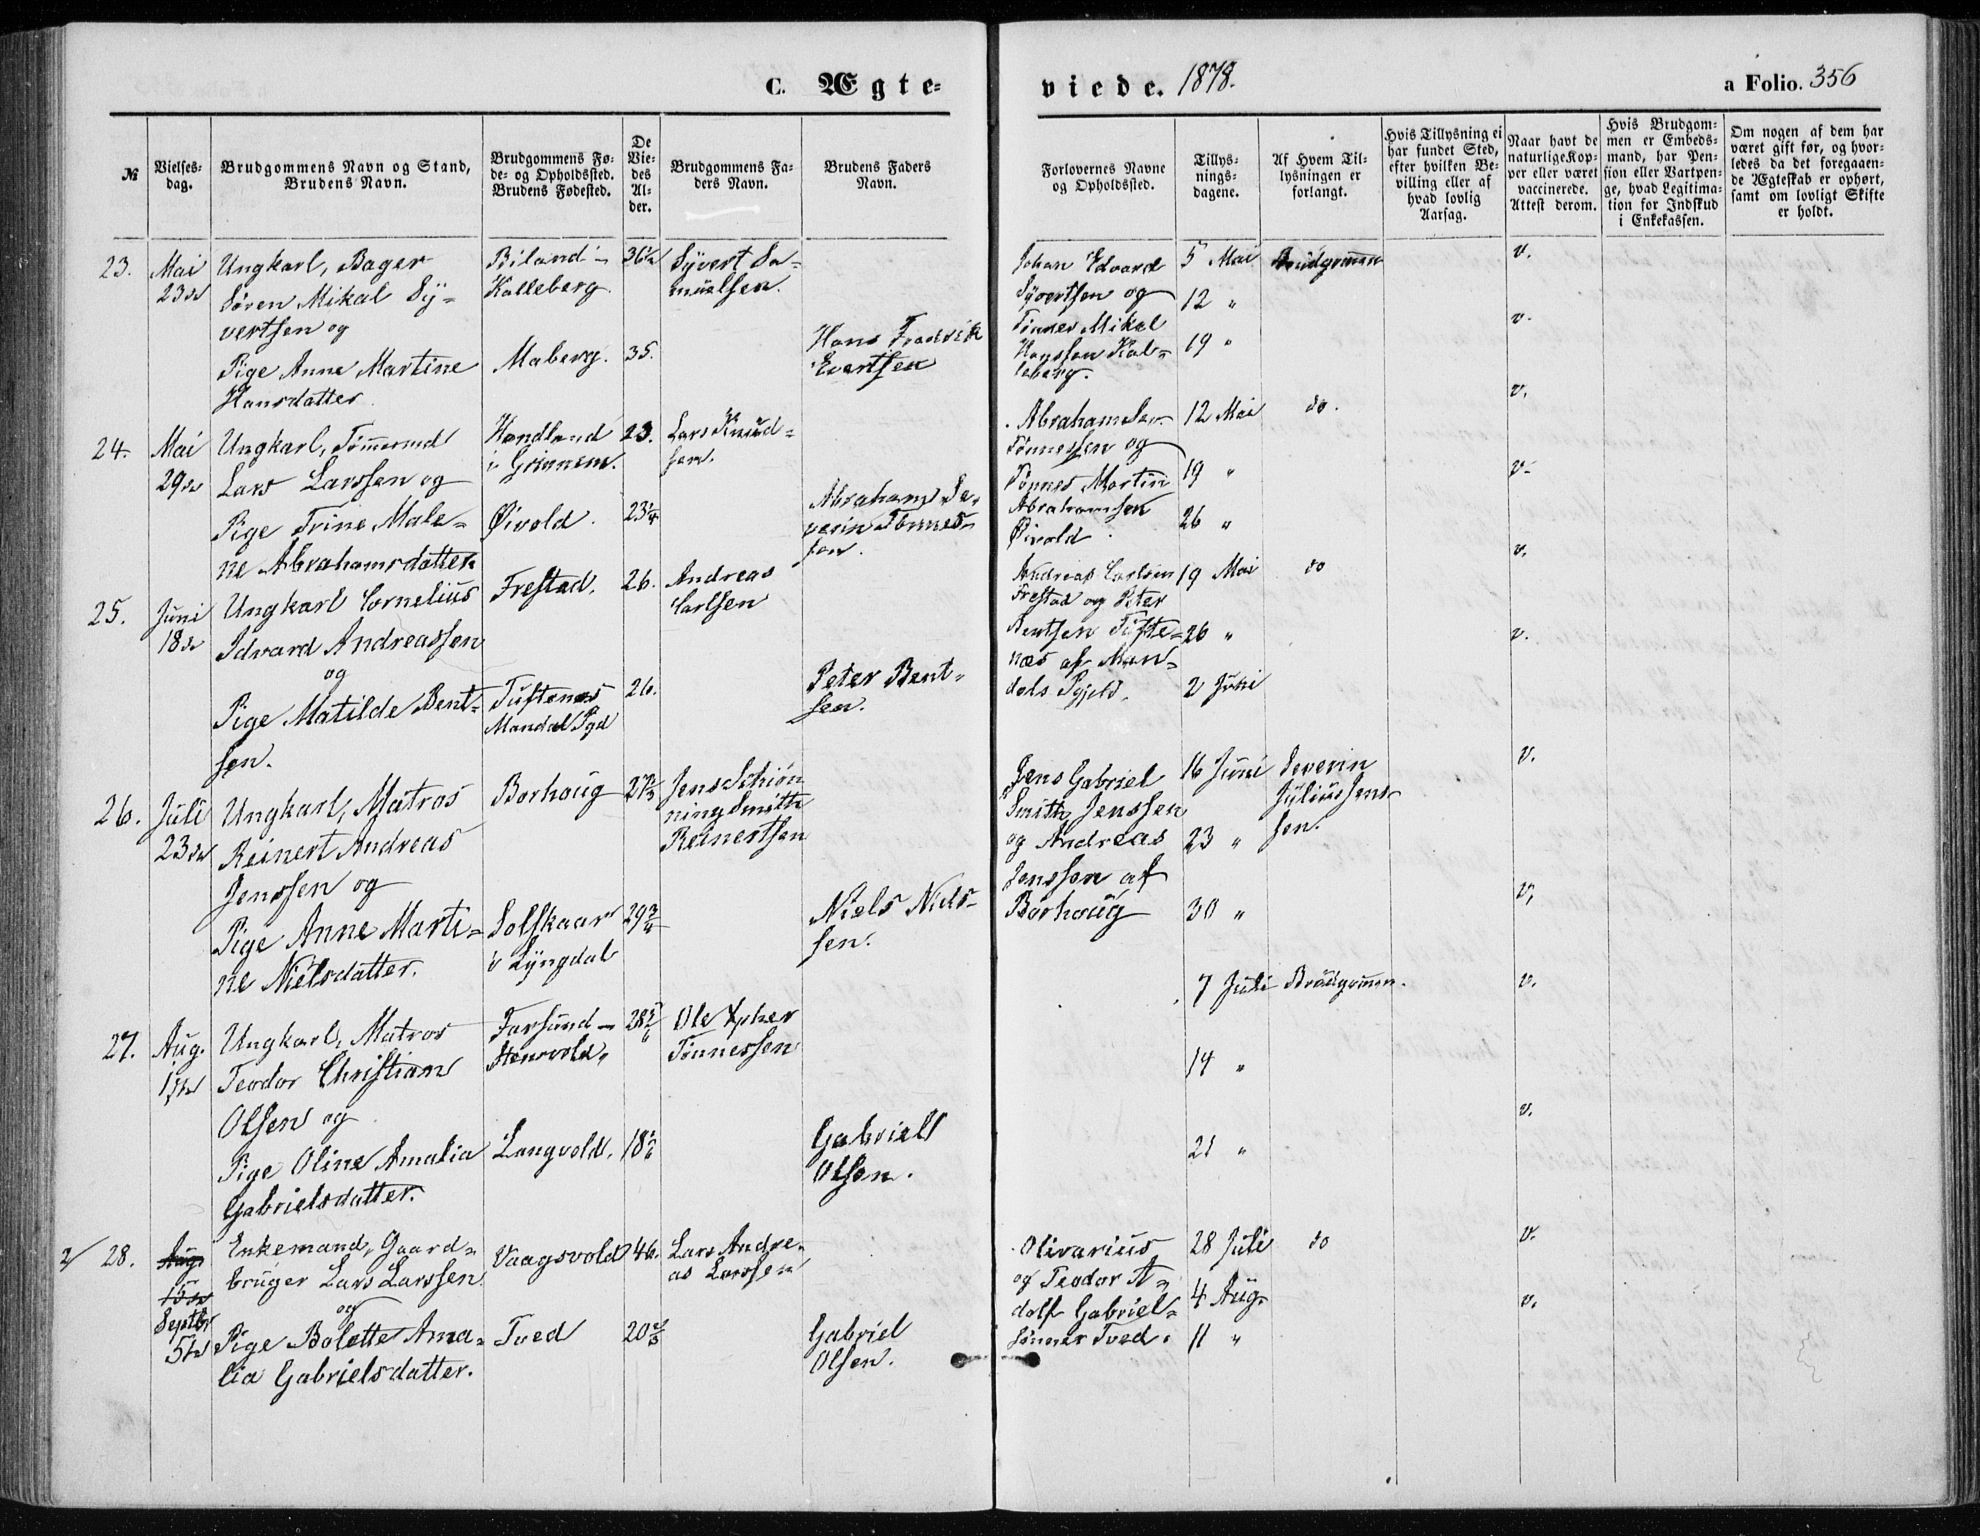 C. Ægte-
viede. 1878.
a Folio. 356
№
Vielses-
dag.
Brudgommens Navn og Stand,
Brudens Navn.
Brudgommens Fø-
de- og Opholdssted.
Brudens Fødested.
De
Vie-
des
Al-
der.
Brudgommens Fa-
ders Navn.
Brudens Faders
Navn.
Forlovernes Navne
og Opholdssted.
Tillys-
nings-
dagene.
Af Hvem Til-
lysningen er
forlangt.
Hvis Tillysning ei
har fundet Sted,
efter hvilken Be-
villing eller af
hvad lovlig
Aarsag.
Naar havt de
naturlige Kop-
per eller været
vaccinerede.
Attest derom.
Hvis Brudgom-
men er Embeds-
mand, har Pen-
sion eller Vartpen-
ge, hvad Legitima-
tion for Indskud
i Enkekassen.
Om nogen af dem har
været gift før, og hvor-
ledes da det foregaaen-
de Ægteskab er ophørt,
samt om lovligt Skifte
er holdt.
23.
Mai
23de
Ungkarl, Bager
Søren Mikal Sy-
vertsen og
Pige Anne Martine
Hansdatter
Biland i
Kalleberg.
Maberg.
36½
35.
Syvert Sa-
muelsen.
Hans Fredrik
Evertsen
Johan Edvard
Syvertsen og
Tønnes Mikal
Hanssen Kal-
leberg.
5 Mai
12 "
19 "
Brudgommen
v.
v.
24.
Mai
29de
Ungkarl, Tømmermd
Lars Larssen og
Pige Trine Male-
ne Abrahamsdatter
Handeland
i Grinnem.
Øivold.
23.
23¼
Lars Knud-
sen.
Abraham Se-
verin Tønnes-
sen.
Abraham Sev.
Tønnessen og
Tønnes Martin
Abrahamsen
Øivold.
12 Mai
19 "
26 "
do.
v.
v.
25.
Juni
18de
Ungkarl Cornelius
Edvard Andreassen
og
Pige Matilde Bent-
sen.
Frestad.
Tuftenes
Mandal Pgd
26.
26.
Andreas
Carlsen
Peter Bent-
sen.
Andreas Carlsen
Frestad og Peter
Bentsen Tufte-
nes af Man-
dals Pgjeld.
19 Mai
26 "
2 Juni
do
v.
v.
26.
Juli
23de
Ungkarl, Matros
Reinert Andreas
Jenssen og
Pige Anne Marti-
ne Nielsdatter.
Borhoug
Solskaar
i Lyngdal
29¾
Jens Schiøn
ning Smith
Reinertsen
Niels Niels-
sen.
Jens Gabriel
Smith Jenssen
og Andreas
Jenssen af
Borhoug
16 Juni
23 "
30 "
Severin
Juliussens-
sen.
v.
v.
27.
Aug.
1ste
Ungkarl, Matros
Teodor Christian
Olsen og
Pige Oline Amalia
Gabrielsdatter.
Farsund
Langvold.
18½
Ole Xpher
Tønnessen
Gabriell
Olsen.
7 Juli
14 "
21 "
Brudgommen.
v.
v.
2/ 28.
Aug
15de
Septbr
5te
Enkemand, Gaard-
bruger Lars Larssen
og
Pige Bolette Ama-
lia Gabrielsdatter.
Vaagsvold
Tved
46.
Lars Andre-
as Larssen
Gabriel
Olsen.
Olivarius
og Teodor A-
dolf Gabriel-
sønner Tved.
28 Juli
4 Aug.
11 "
do
v.
v.